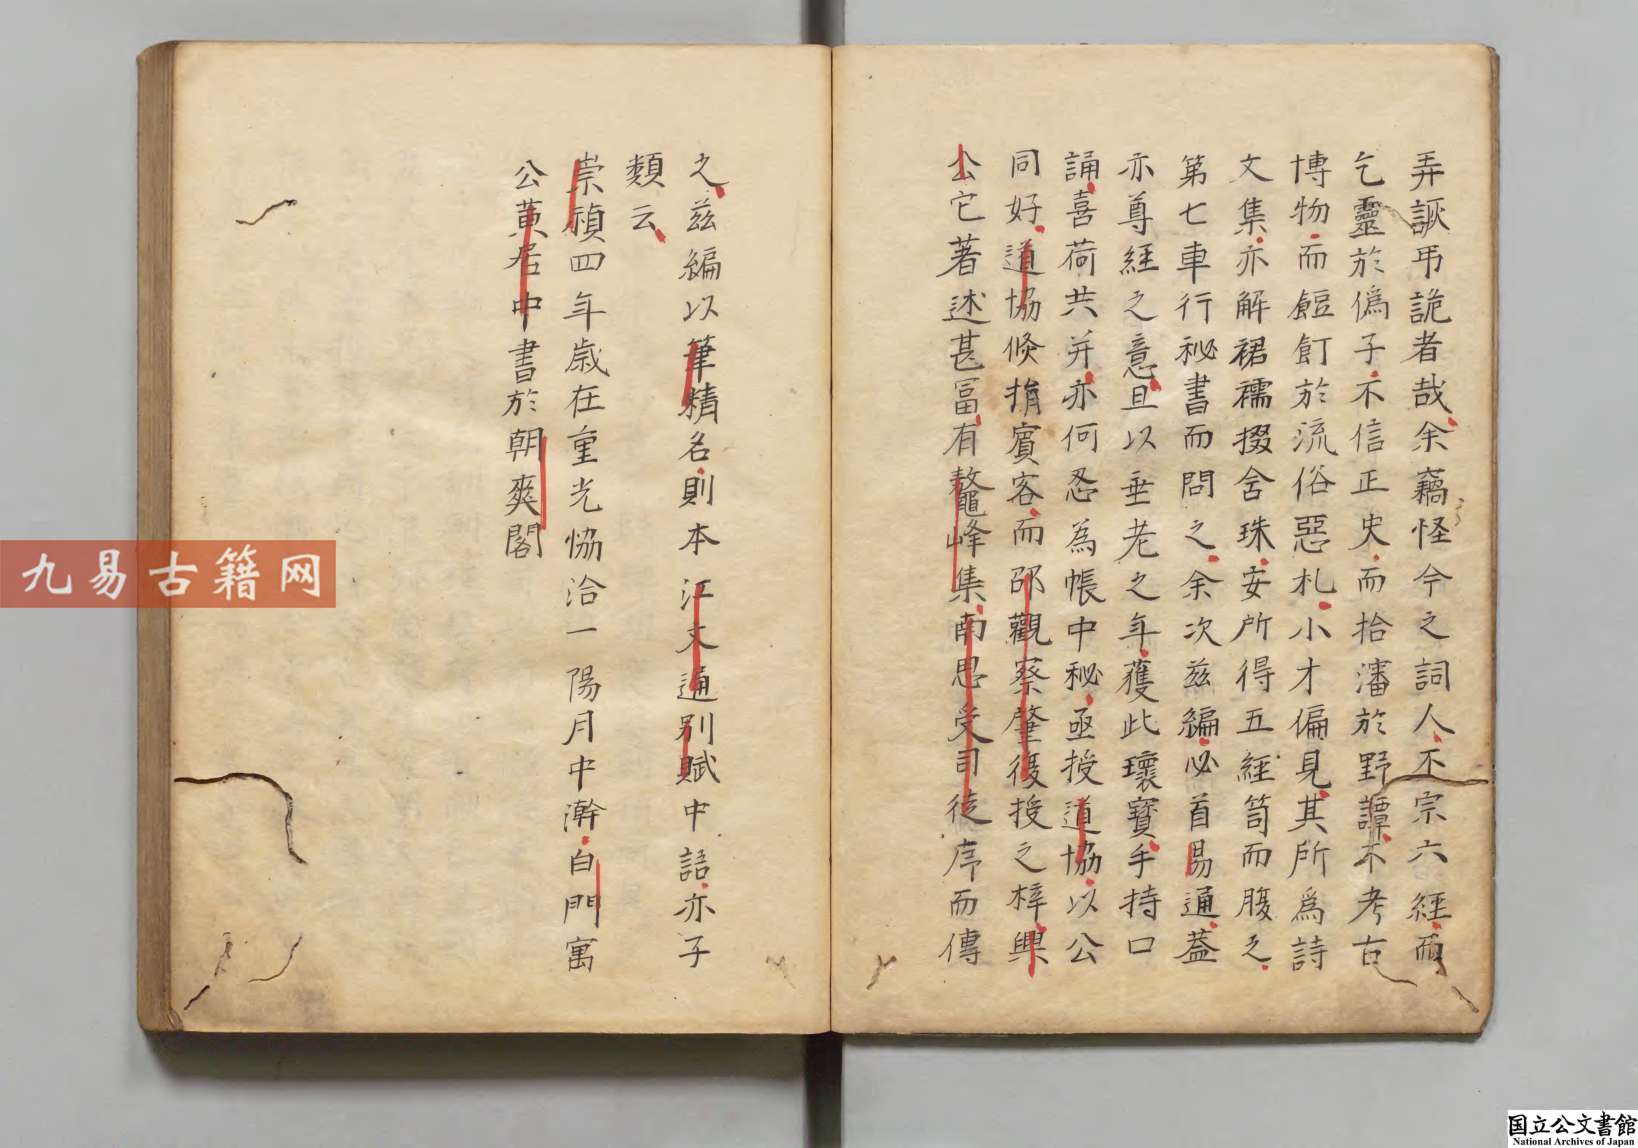 弄諔弔詭者哉余竊怪今之詞人不宗六經而
乞靈於僞子不信正史而拾瀋於野譚不考古
博物而飣於流俗惡札小才偏見其所爲詩
文集亦解裙襦掇含珠安所得五經笥而腹之
第七車行秘書而問之余次兹編必首易通葢
亦尊經之意且以垂老之年獲此瓌寶手持口
誦喜荷共并亦何忍為帳中秘亟授道協以公
同好道協倏捐賓客而邵觀察肇復授之梓興
公它著述甚富有鼇峰集南思受司徒序而傳
之兹編以筆精名則本江文通别賦中語亦子
類云
崇禎四年歲在重光協洽一陽月中澣白門寓
公黃居中書於朝爽閣
九易古籍网
国立公文書館
National Archives of Japan